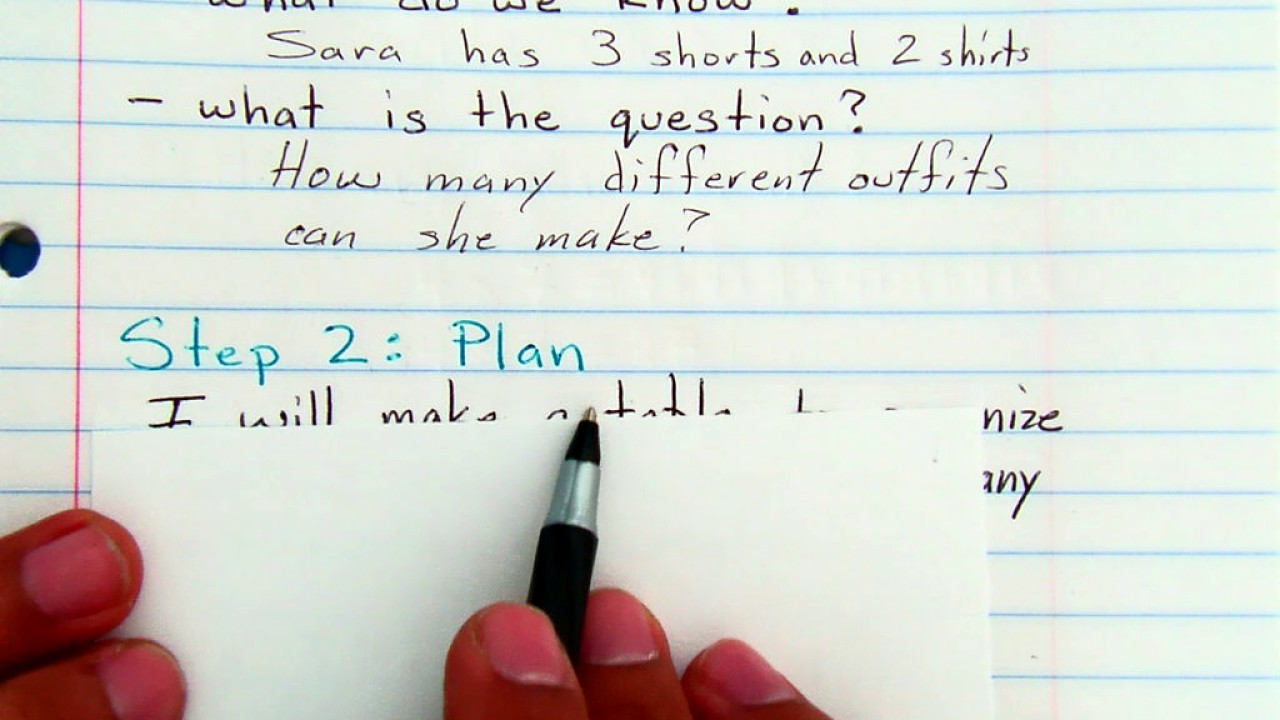 what do we know?
Sara has 3 shorts and 2 shirts
- what is the question?
How many different outfits
can she make?
Step 2: Plan
I will make a table